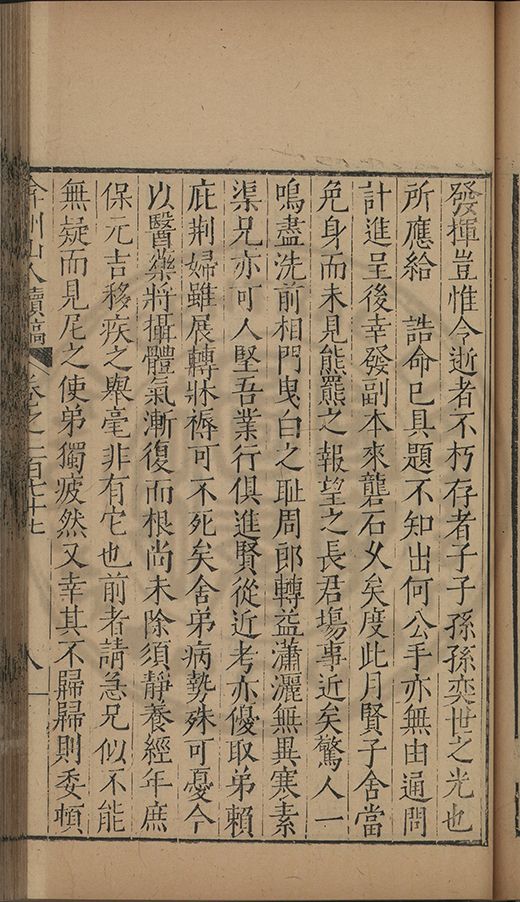 發揮豈惟令逝者不朽存者子子孫孫奕世之光也
所應給　誥命已具題不知出何公手亦無由通問
計進呈後幸發副本來礲石久矣度此月賢子舍當
免身而未見熊羆之報望之長君塲事近矣驚人一
鳴盡洗前相門曳白之耻周郎轉益瀟灑無異寒素
渠兄亦可人堅吾業行俱進賢從近考亦優取弟賴
庇荆婦雖展轉牀褥可不死矣舍弟病勢殊可憂今
以醫藥將攝體氣漸復而根尚未除須靜養經年庶
保元吉移疾之舉毫非有它也前者請急兄似不能
無疑而見尼之使弟獨疲然又幸其不歸歸則委頓
弇州山人續稿　卷之一百七十七　八